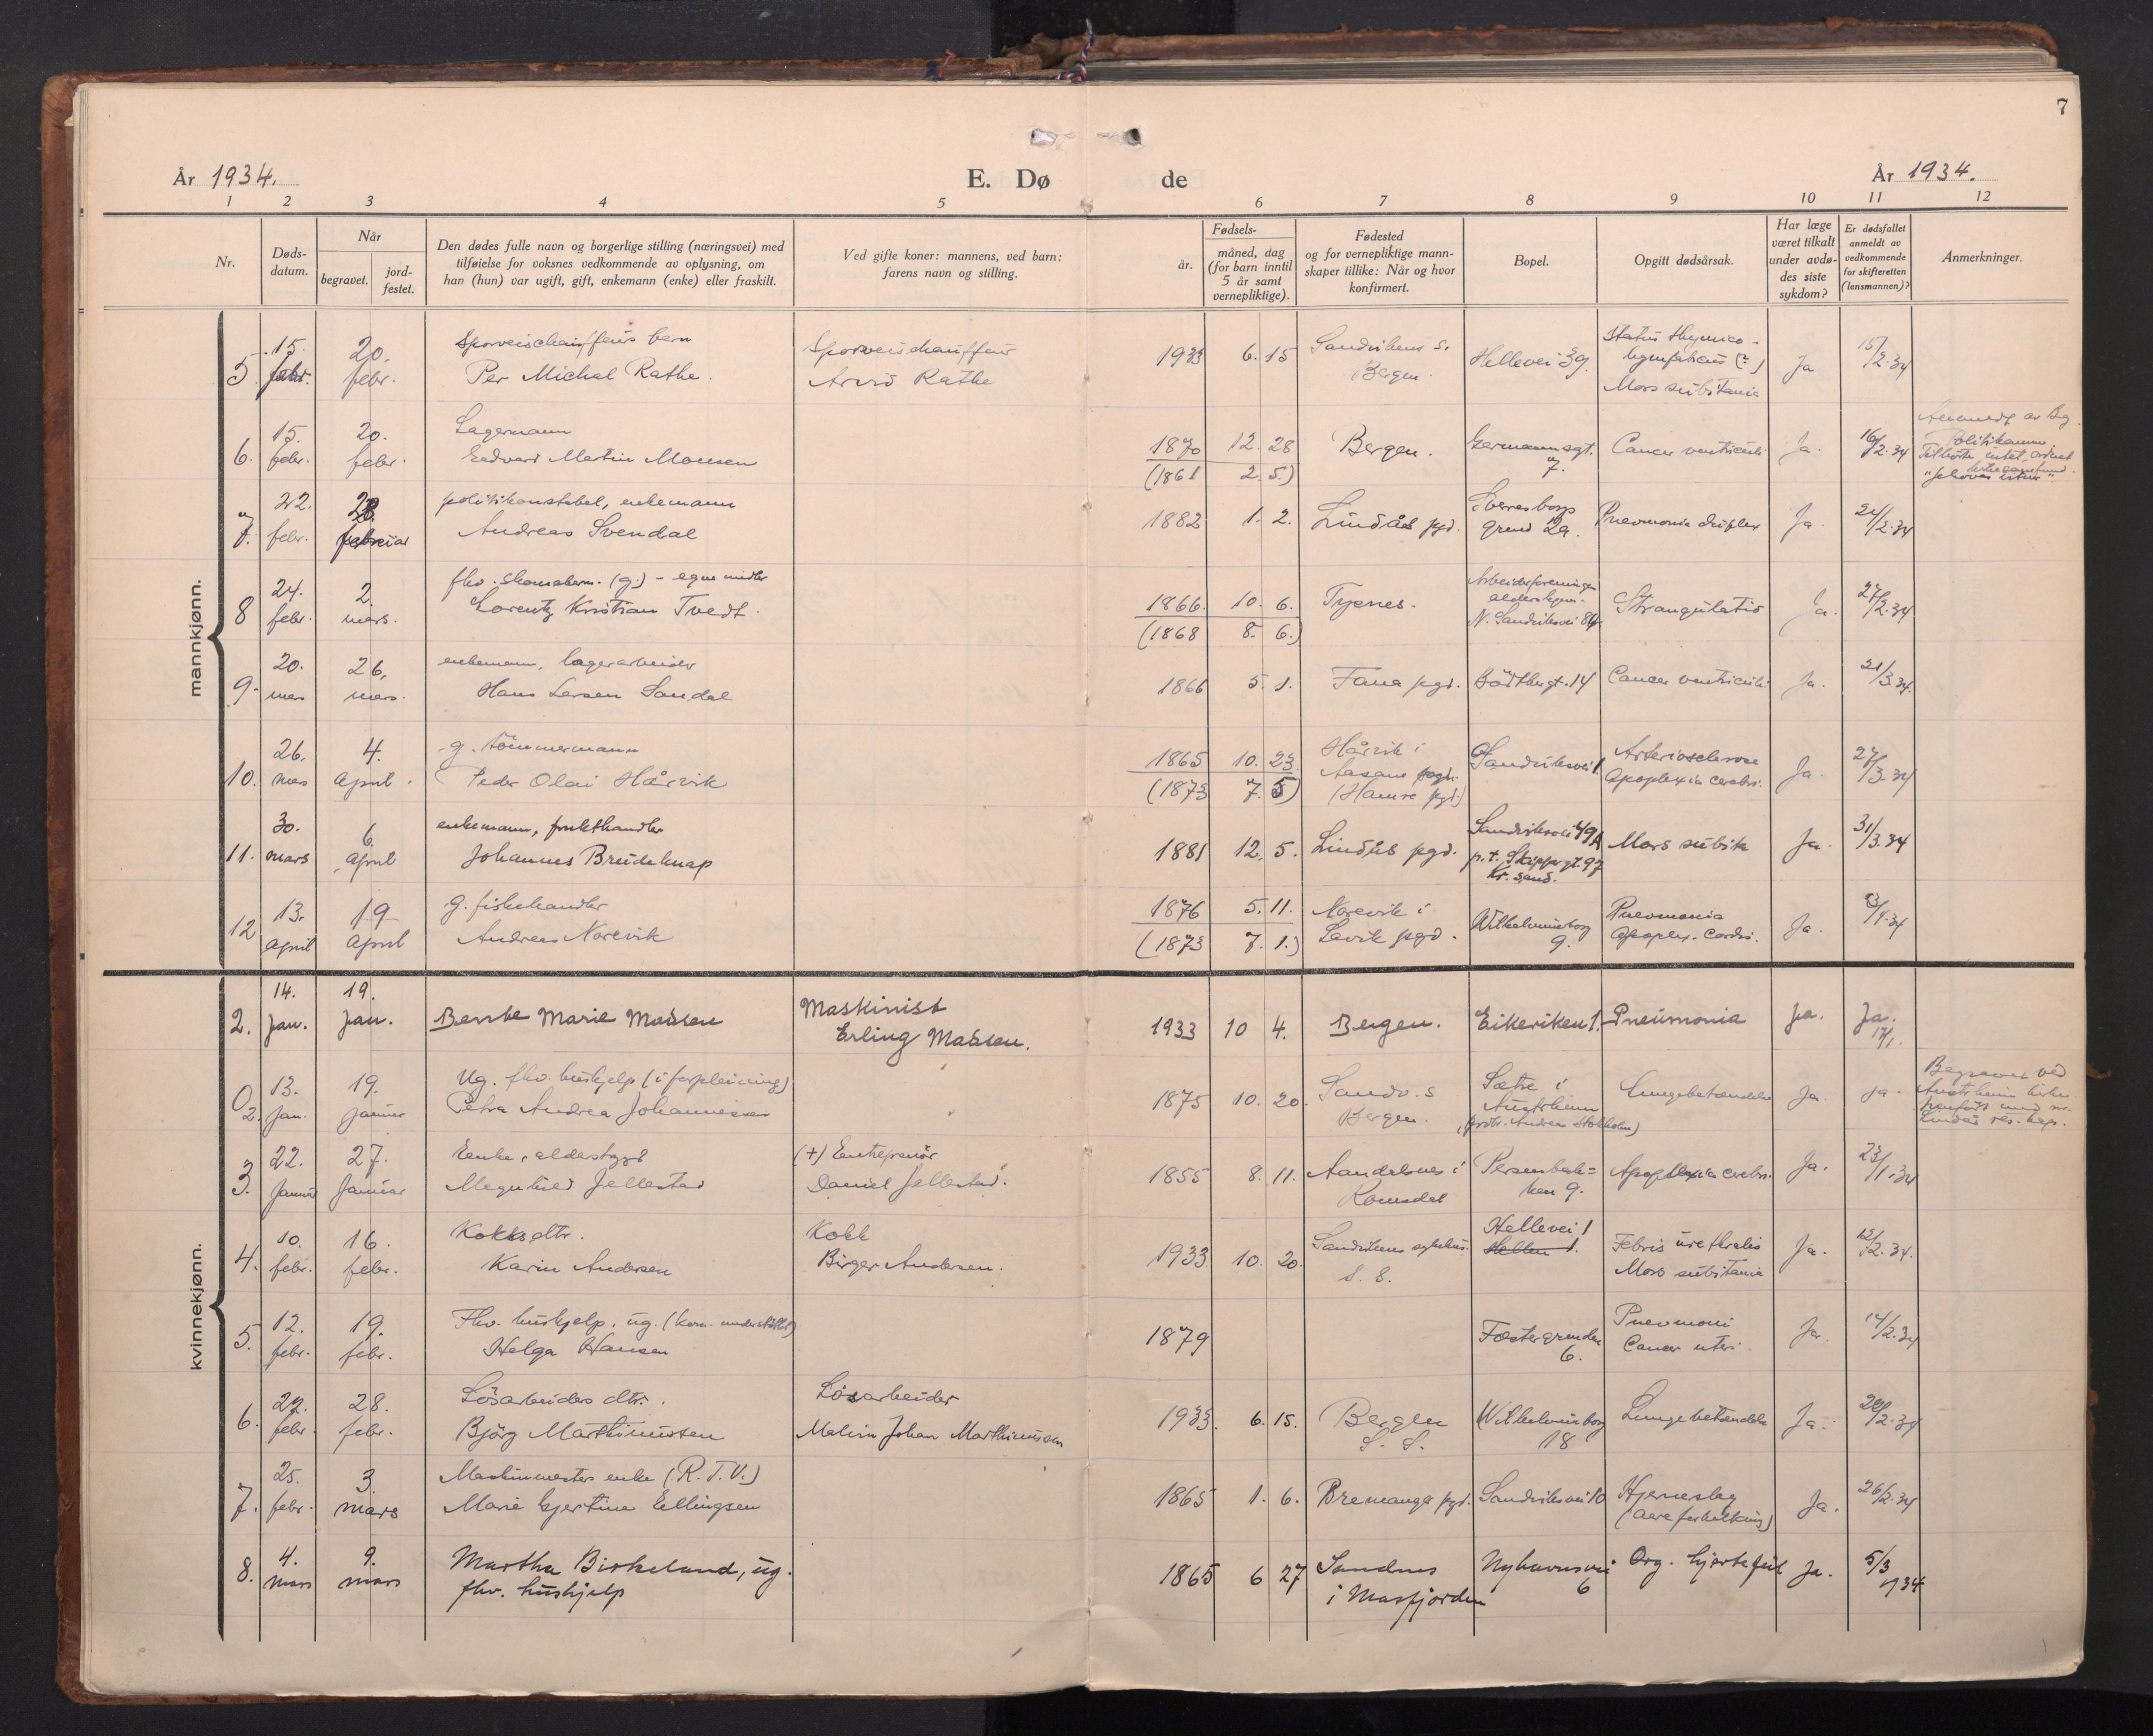 7
År 1934.
E. Dø de
År 1934.
1 2 3 4 5 6 7 8 9 10 11 12
Nr.
Døds-
datum.
Når
begravet.
jord-
festet.
Den dødes fulle navn og borgerlige stilling (næringsvei) med
tilføielse for voksnes vedkommende av oplysning, om
han (hun) var ugift, gift, enkemann (enke) eller fraskilt.
Ved gifte koner: mannens, ved barn:
farens navn og stilling.
Fødsels-
år.
måned, dag
(for barn inntil
5 år samt
vernepliktige).
Fødested
og for vernepliktige mann-
skaper tillike: Når og hvor
konfirmert.
Bopel.
Opgitt dødsårsak.
Har læge
været tilkalt
under avdø-
des siste
sykdom?
Er dødsfallet
anmeldt av
vedkommende
for skifteretten
(lensmannen)?
Anmerkninger.
mannkjønn.
5 15. febr. 20. febr.
Sporveischauffeurs barn
Per Michal Rathe.
Sporveischauffeur
Arvid Rathe
1933 6. 15
Sandvikens s.
Bergen.
Hellevei 39.
Status thymico-
lymphaticus (?)
Mors subitania
Ja
15/2.34
6. 15. febr. 20. febr.
Lagermann
Edvard Martin Monsen
1870 12. 28
(1861 2. 5.)
Bergen.
Germannsgt.
7.
Cancer ventriculi
Ja.
16/2.34
Politikammer
7. 22. febr. 28. februar
politikonstabel, enkemann
Andreas Svendal
1882 1. 2.
Lindås pgd.
Sverresborg
grend 2a.
Pneumonia duplex
Ja
24/2.34
8 24. febr. 2. mars.
fhv. skomakerm. (g.) - egne midler
Lorentz Kristian Tvedt.
1866. 10. 6.
(1868 8. 6.)
Tysnes.
Arbeiderforeningen
aldershjem.
N. Sandviksvei 86
Strangulatio
Ja.
27/2.34
9. 20. mars 26. mars.
enkemann, lagerarbeider
Hans Larsen Sandal
1866 5. 1.
Fana pgd.
Bødthgt. 14
Cancer ventriculi
Ja.
21/3.34.
10. 26. mars 4. april.
g. tömmermann
Peder Olai Hårvik
1865 10. 23.
(1873 7. 5)
Hårvik i
Aasane sogn.
(Hamre pgd.)
Sandviksvei 1.
Arteriosclerose
Apoplexia cerebri.
Ja.
27/3.34
11. 30. mars 6. april
enkemann, frukthandler
Johannes Brudeknap
1881 12. 5.
Lindås pgd.
Sandviksvei 49A
p.t. Skippergt. 97
Kr. sand.
Mors subita
Ja.
31/3.34
12 13. april 19 april
g. fiskehandler
Andreas Norevik
1876 5. 11.
(1873 7. 1.)
Norevik i
Lavik pgd.
Wilhelmineborg
9.
Pneumonia
Apoplex. cordis.
Ja.
kvinnekjønn.
2. 14. Jan. 19. jan.
Bente Marie Madsen
Maskinist
Erling Madsen.
1933 10 4.
Bergen.
Eikeviken 1.
Pneumonia
ja.
Ja.
17/1.
0 2. 13. Jan. 19. januar
Ug. fhv. hushjelp (i forpleining)
Petra Andrea Johannessen
1875 10. 20.
Sandv. s
Bergen.
Sætre i
Austrheim
Lungebetændelse
Ja.
ja.
Begravet ved
Austrheim kirke.
3. 22. Januar 27. Januar
Enke, alderstrygd
Magnhild Jellestad
(+) Entreprenör
Daniel Jellestad.
1855 8. 11.
Aandalsnes i
Romsdal
Persenbak=
ken 9.
Apoplexia cerebri.
Ja.
23/1.34
4. 10. febr. 16. febr.
Kokks dtr.
Karin Andersen
Kokk
Birger Andersen.
1933. 10. 20.
Sandvikens sykehus.
S. S.
Hellevei 1
Hellen 1.
Febris urethralis
Mors subitania
Ja.
12/2.34.
5. 12. febr. 19. febr.
Fhv. hushjelp, ug. (kom. understöttet)
Helga Hansen
1879
Fæstergrenden
6.
Pneumoni
Cancer uteri.
Ja.
14/2.34
6. 22. febr. 28. febr.
Lösarbeiders dtr.
Björg Marthinussen
Lösarbeider
Malvin Johan Marthinussen
1933. 6. 15.
Bergen
S. S.
Wilhelmineborg
18
Lungebetændelse
Ja.
7. 25. febr. 3. mars
Maskinmesters enke (R. T. V.)
Marie Gjertine Ellingsen
1865 1. 6.
Bremanger pgd.
Sandviksvei 10
Hjerneslag
(aareforkalkning)
Ja.
26/2.34
8. 4. mars 9. mars
Martha Birkeland, ug.
fhv. hushjelp
1865 6 27
Sandnes
i Masfjorden
Nyhavnsvei
6
Org. hjertefeil
Ja.
5/3 1934